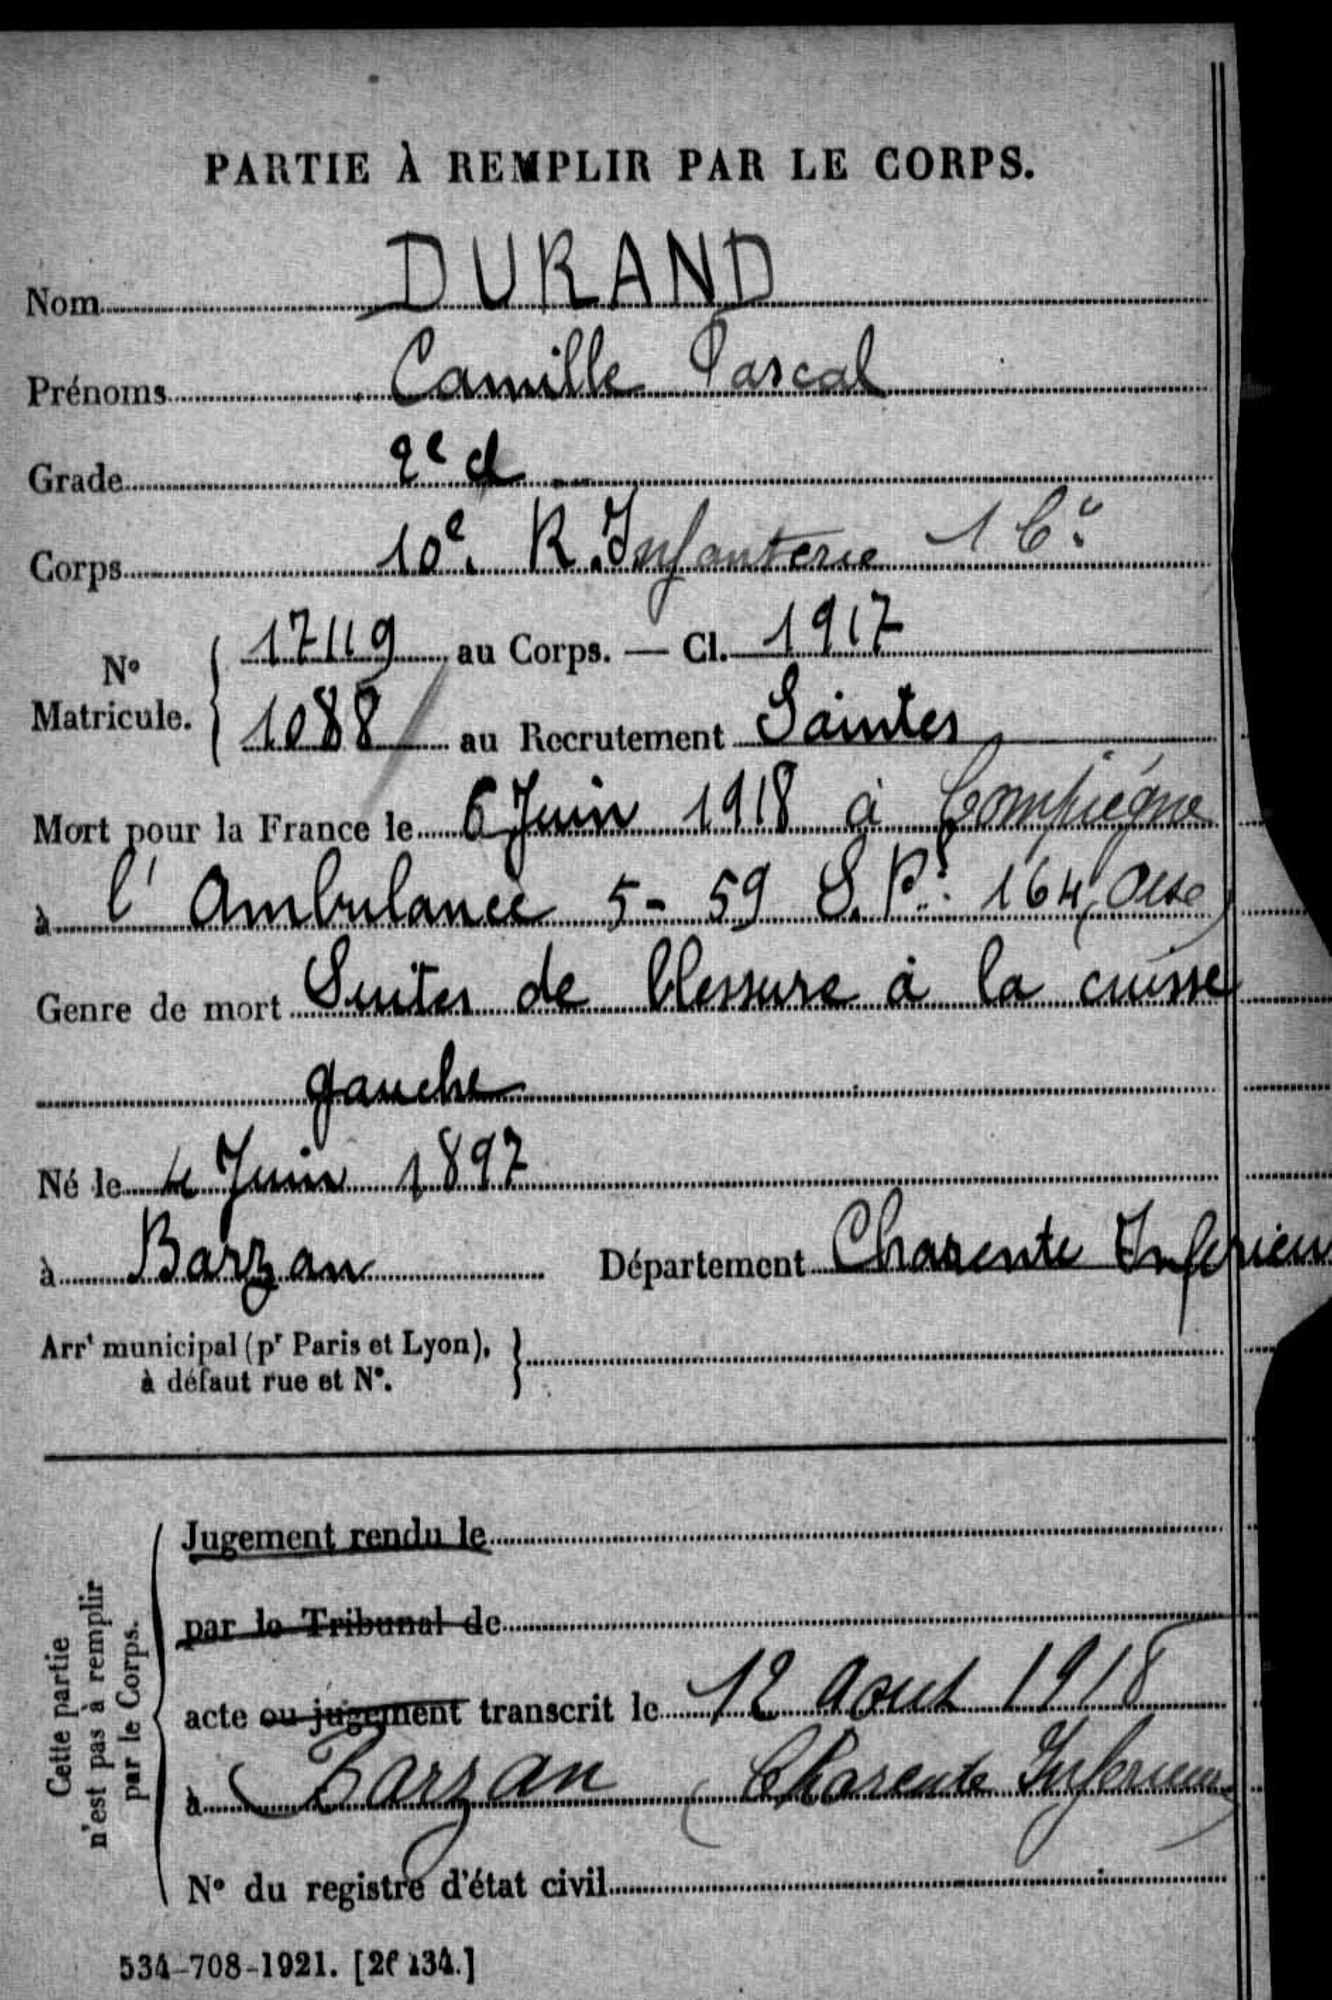 PARTIE À REMPLIR PAR LE CORPS.
Nom DURAND
Prénoms Camille Pascal
Grade 2e cl
Corps 10e R. Infanterie 1 Cie
N° Matricule. { 17119 au Corps. — Cl. 1917
1088 au Recrutement Saintes
Mort pour la France le 6 Juin 1918 à Compiègne
à l'Ambulance 5-59 S.P. 164 (Oise)
Genre de mort Suites de blessure à la cuisse
gauche
Né le 4 Juin 1897
à Barzan Département Charente Inferieu
Arrt municipal (pr Paris et Lyon),
à défaut rue et N°.
Cette partie
n'est pas à remplir
par le Corps.
Jugement rendu le
par le Tribunal de
acte ou jugement transcrit le 12 Aout 1918
à Barzan (Charente Inferieure)
N° du registre d'état civil
534-708-1921. [26134.]